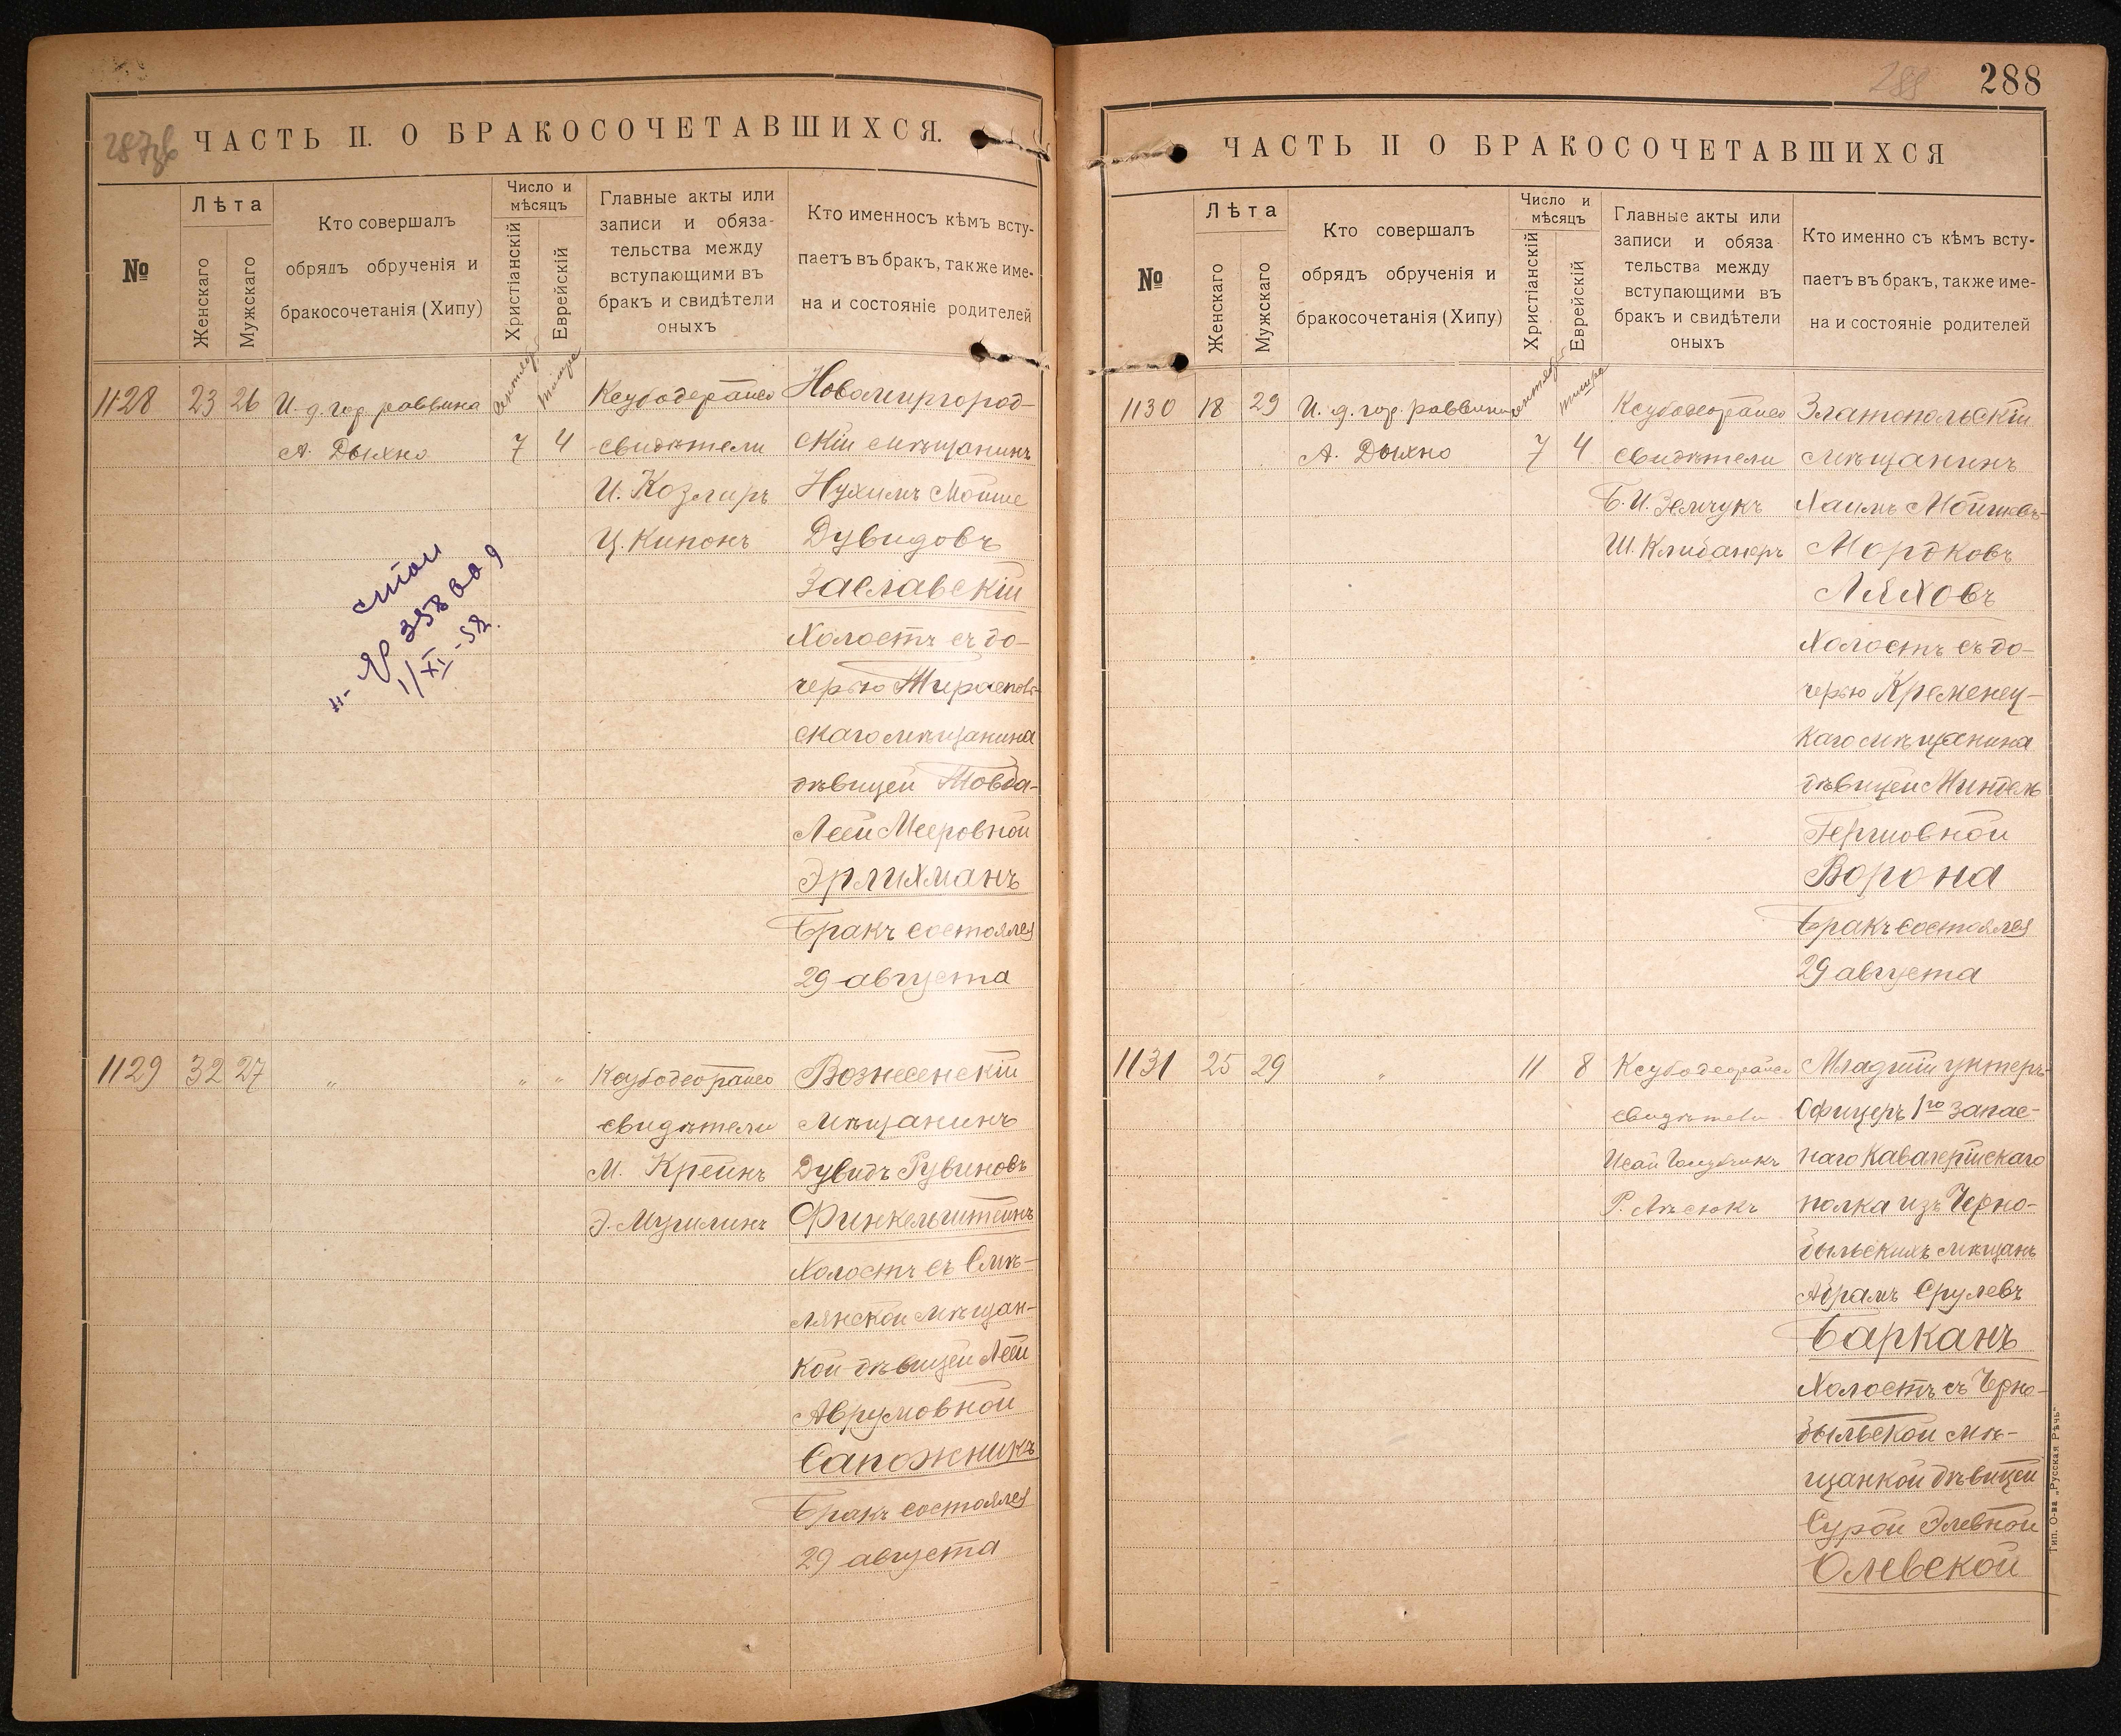 287зв
ЧАСТЬ II. О БРАКОСОЧЕТАВШИХСЯ.
№
Лѣта
Женскаго
Мужскаго
Кто совершалъ
обрядъ обрученія и
бракосочетанія (Хипу)
Число и
мѣсяцъ
Христіанскій
Еврейскій
Главные акты или
записи и обяза-
тельства между
вступающими въ
бракъ и свидѣтели
оныхъ
Кто именносъ кѣмъ всту-
паетъ въ бракъ, также име-
на и состояніе родителей
1128
23
26
И. д. гор. раввина
А. Дыхно
7
4
свидѣтели
И. Козлиръ
Ц. Кипонъ
Новомиргород-
скій мѣщанинъ
Нухимъ Мойше
Дувидовъ
Заславскій
Холостъ съ до-
черью Тирасполь-
скаго мѣщанина
дѣвицей Товба-
Леей Мееровной
Эрлихманъ
Бракъ состоялся
29 августа
1/XI-58.
1129
32
27
"
" "
свидѣтели
М. Крейнъ
Э. Мугилинъ
Вознесенскій
Мѣщанинъ
Дувидъ Рувиновъ
Финкельштейнъ
Холостъ съ Смѣ-
лянской мѣщан-
кой дѣвицей Леей
Аврумовной
Сапожникъ
Бракъ состоялся
29 августа
288
288
ЧАСТЬ II О БРАКОСОЧЕТАВШИХСЯ
№
Лѣта
Женскаго
Мужскаго
Кто совершалъ
обрядъ обрученія и
бракосочетанія (Хипу)
Число и
мѣсяцъ
Христіанскій
Еврейскій
Главные акты или
записи и обяза
тельства между
вступающими въ
бракъ и свидѣтели
оныхъ
Кто именно съ кѣмъ всту-
паетъ въ бракъ, также име-
на и состояніе родителей
1130
18
29
И. д. гор. раввина
А. Дыхно
7
4
свидѣтели
Б. И. Земчукъ
Ш. Клибанеръ
Златопольскій
мѣщанинъ
Хаимъ Мойшевъ-
Мордковъ
Ляховъ
Холостъ съ до-
черью Кременец-
каго мѣщанина
дѣвицей Миндель
Гершовной
Ворона
Бракъ состоялся
29 августа
1131
25
29
"
11
8
свидѣтели
Р. Лѣсюкъ
Младшій унтеръ-
Офицеръ 1го запас-
наго Кавалерійскаго
полка изъ Черно-
быльскихъ мѣщанъ
Абрамъ Срулевъ
Барканъ
Холостъ съ Черно-
быльской мѣ-
щанкой дѣвицей
Сурой Элевной
Олевской
Тип. О-ва „Русская Рѣчь"